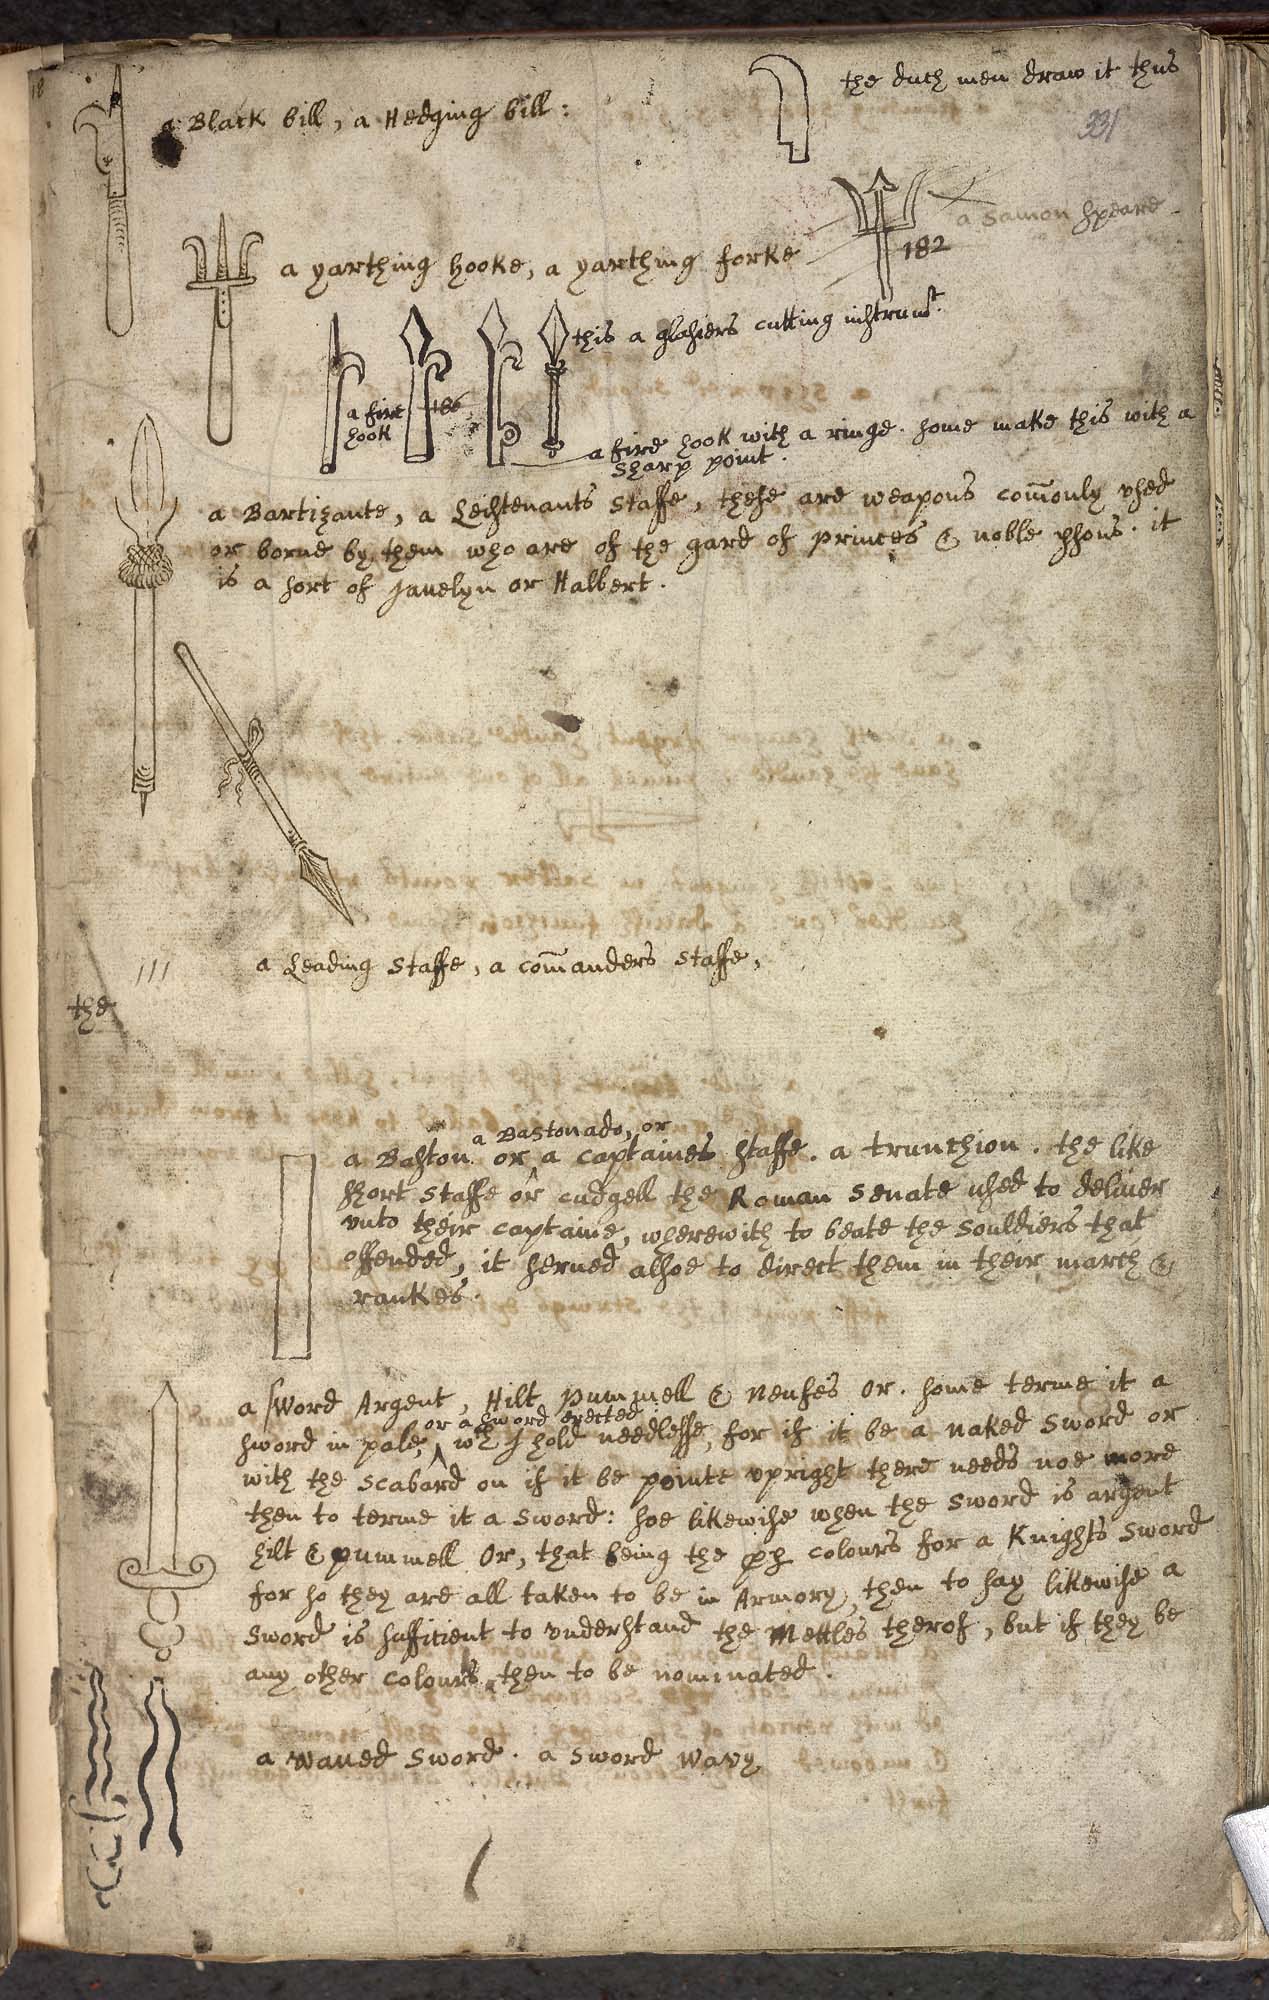 the dutch men draw it thus
331
a Black bill, a Hedging bill:
a Samon speare
182
a yarthing hooke, a yarthing forke
this a glasiers cutting instrumt.
a fire
hook
186
a fire hook with a ringe. some make this with a
sharp point.
a Bartizante, a Leistenants Staffe, these are weapons com̄only vsed
or borne by them who are of the gard of princes & noble psons. it
is a sort of Javelyn or Halbert.
111
a Leading Staffe, a com̄anders staffe,
the
a Bastonado, or
a Baston or ^ a captaines staffe. a trunchion. the like
short staffe or cudgell the Roman Senate used to deliver
vnto their captaine, wherewith to beate the souldiers that
offended, it served alsoe to direct them in their march &
rankes.
a sword Argent, Hilt pummell & nenfes Or. some terme it a
or a sword erected
sword in pale, ^ wch I hold needlesse, for if it be a naked sword or
with the scabard on if it be pointe vpright there needs noe more
then to terme it a sword: soe likewise when the sword is argent
hilt & pummell Or, that being the colours for a Knights sword
for so they are all taken to be in Armory, then to say likewise a
sword is sufficient to vnderstand the Mettles therof, but if they be
any other colours then to be nominated.
a waued sword. a sword wavy